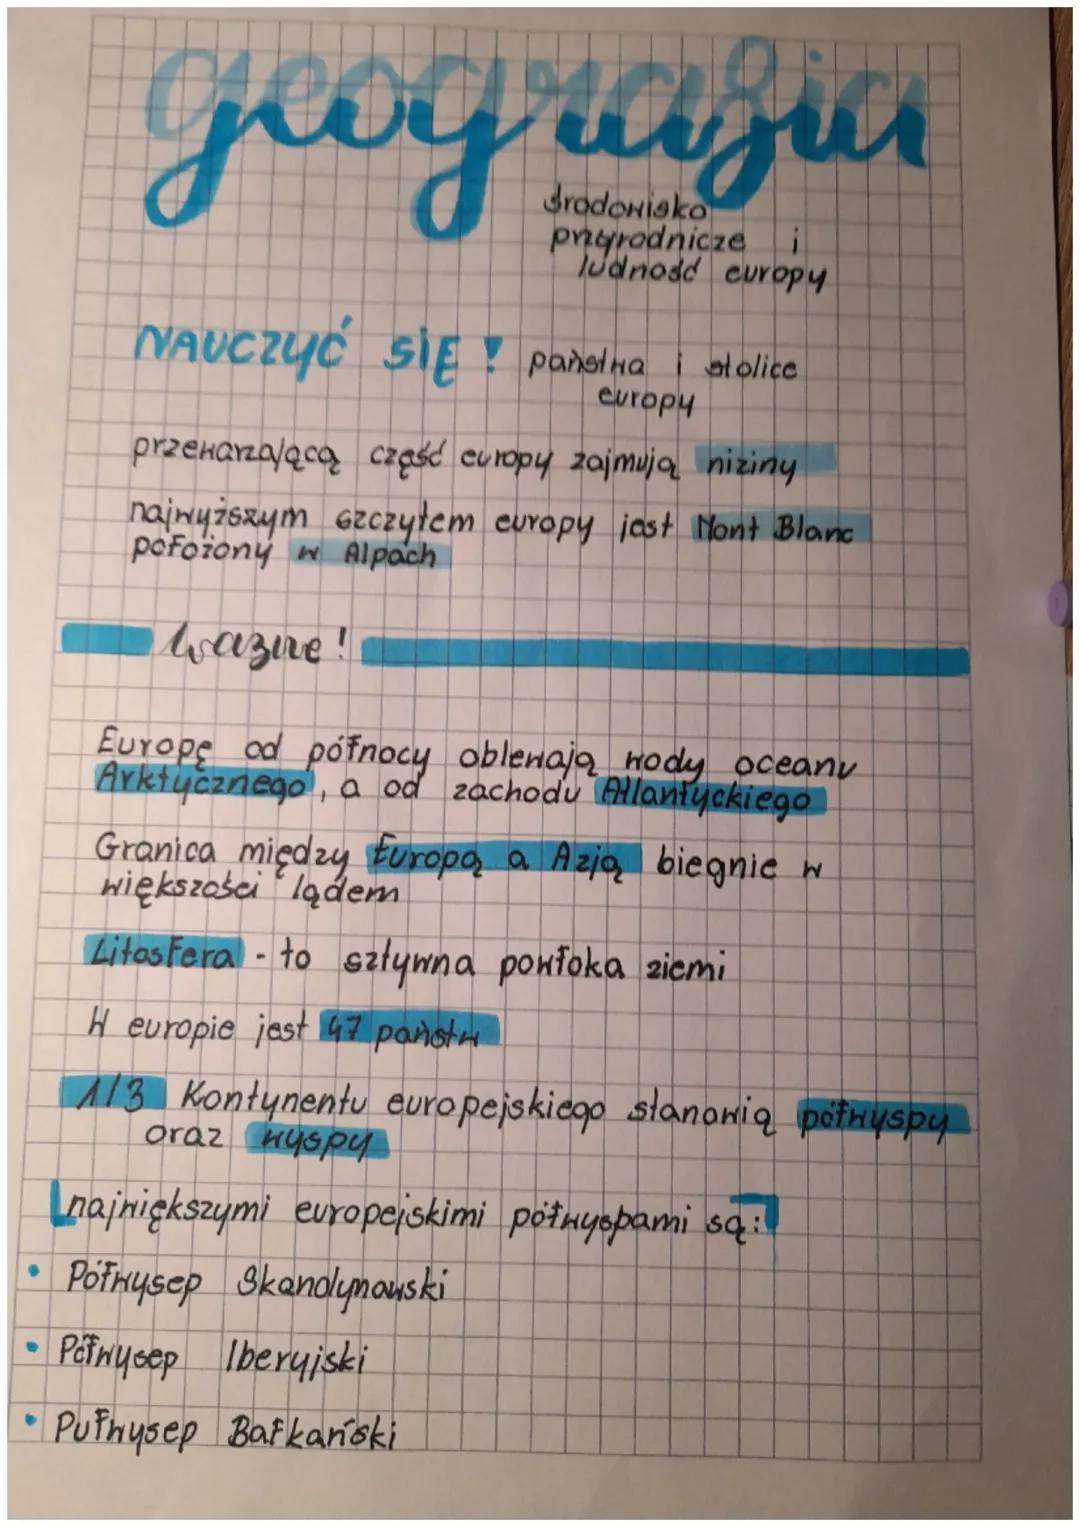 geografia
środowisko
przyrodnicze i
ludność europy
NAUCZYĆ SIĘ! państwa i stolice
europy
przeważającą część europy zajmują niziny
najwyższym szczytem europy jest Mont Blanc
położony w Alpach
Ważne!
Europę od północy oblewają wody oceanu
Arktycznego, a od zachodu Atlantyckiego
Granica między Europą a Azją biegnie w
większości lądem
Litosfera - to sztywna powłoka ziemi
W europie jest 47 państw
1/3 Kontynentu europejskiego stanowią półwyspy
oraz wyspy
największymi europejskimi półwyspami są:
• Półwysep Skandynawski
• Półwysep Iberyjski
• Pułwysep Bałkański